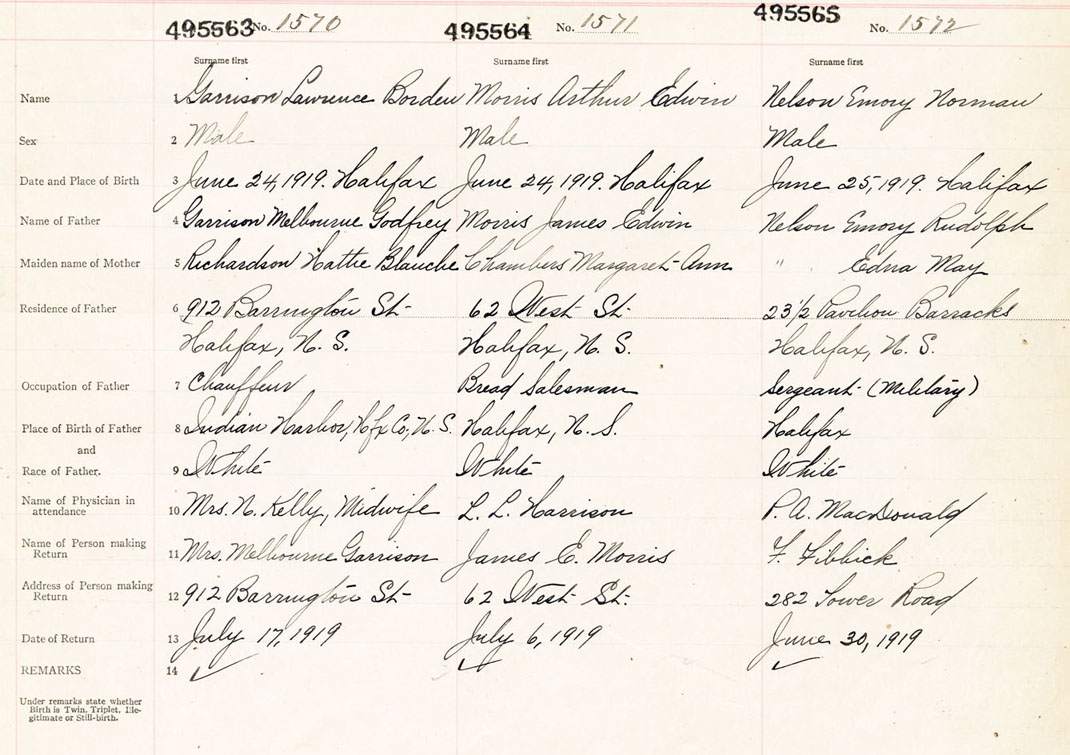 495563 No. 1570 495564 No. 1571 495565 No. 1572
Surname first Surname first Surname first
Name 1 Garrison Lawrence Borden Morris Arthur Edwin Nelson Emory Norman
Sex 2 Male Male Male
Date and Place of Birth 3 June 24, 1919. Halifax June 24, 1919. Halifax June 25, 1919. Halifax
Name of Father 4 Garrison Melbourne Godfrey Morris James Edwin Nelson Emory Rudolph
Maiden name of Mother 5 Richardson Hattie Blanche Chambers Margaret Ann " Edna May
Residence of Father 6 912 Barrington St- 62 West St- 23 1/2 Pavilion Barracks
Halifax, N. S. Halifax, N. S. Halifax, N. S.
Occupation of Father 7 Chauffeur Bread Salesman Sergeant (Military)
Place of Birth of Father 8 Indian Harbor, Hfx Co, N. S. Halifax, N. S. Halifax
and
Race of Father. 9 White White White
Name of Physician in
attendance 10 Mrs. N. Kelly, Midwife L. L. Harrison P. A. MacDonald
Name of Person making
Return 11 Mrs. Melbourne Garrison James E. Morris F. Fibbick
Address of Person making
Return 12 912 Barrington St- 62 West St: 282 Tower Road
Date of Return 13 July 17, 1919 July 6, 1919 June 30, 1919
REMARKS 14
Under remarks state whether
Birth is Twin, Triplet, Ille-
gitimate or Still-birth.